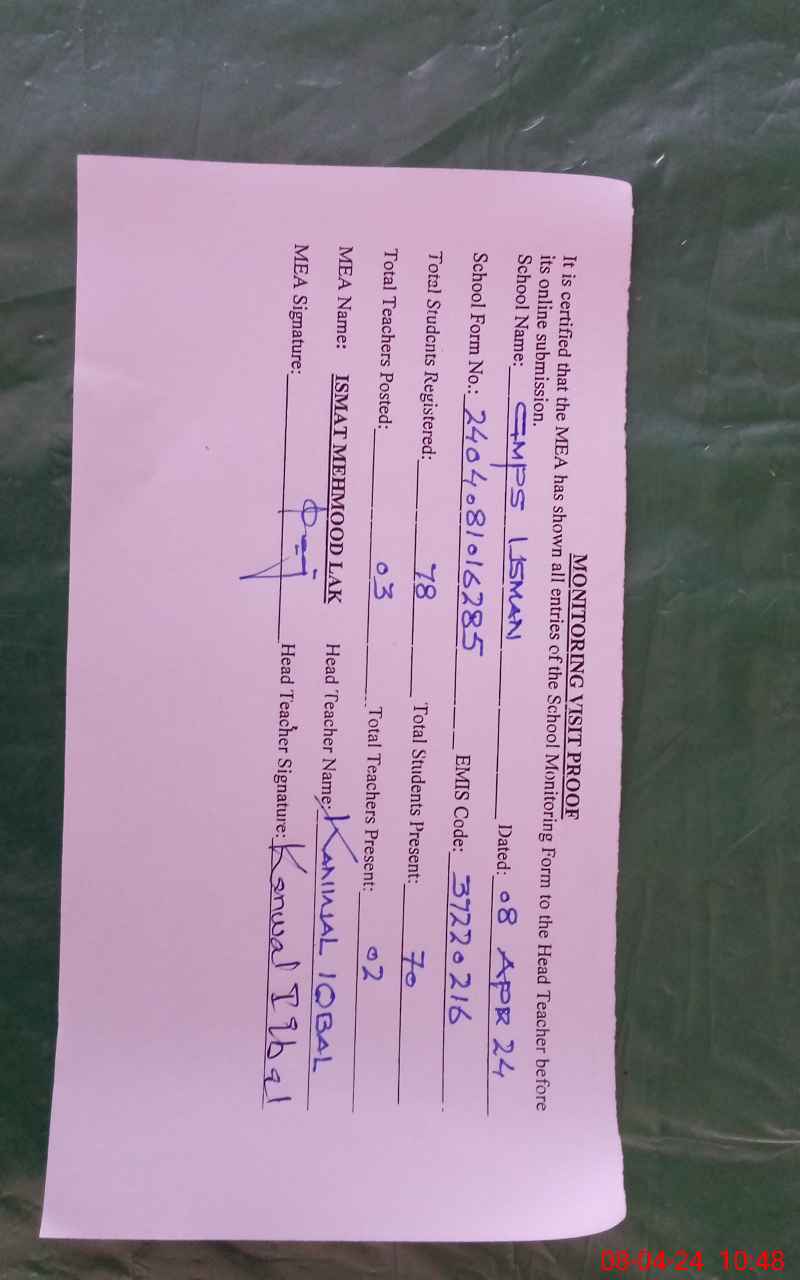 MONITORING VISIT PROOF
It is certified that the MEA has shown all entries of the School Monitoring Form to the Head Teacher before
its online submission.
School Name: GMPS USMAN Dated: 08 APR 24
School Form No.: 2404081016285 EMIS Code: 37220216
Total Students Registered: 78 Total Students Present: 70
Total Teachers Posted: 03 Total Teachers Present: 02
MEA Name: ISMAT MEHMOOD LAK Head Teacher Name: KANWAL IQBAL
MEA Signature: Head Teacher Signature: Kanwal Iqbal
08-04-24 10:48